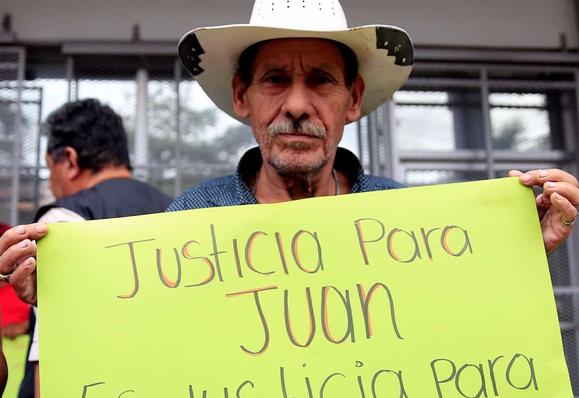 Justicia Para
Juan
Es Justicia Para